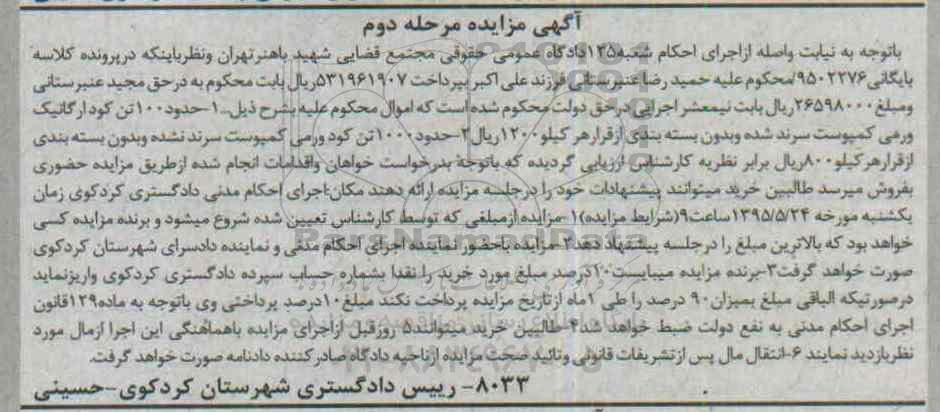 آگهی مزایده مرحله دوم
باتوجه به نیابت واصله ازاجرای احکام شعبه۱۳۵دادگاه عمومی حقوقی مجتمع قضایی شهید باهنرتهران ونظرباینکه درپرونده کلاسه
بایگانی۹۵۰۲۲۷۶/محکوم علیه حمید رضا عنبرستانی فرزند علی اکبر بپرداخت ۵۳۱۹۶۱۹۰۷ریال بابت محکوم به درحق مجید عنبرستانی
ومبلغ۲۶۵۹۸۰۰۰ریال بابت نیمعشر اجرایی درحق دولت محکوم شده است که اموال محکوم علیه بشرح ذیل.. ۱-حدود۱۰۰ تن کود ارگانیک
ورمی کمپوست سرند شده وبدون بسته بندی ازقرارهر کیلو۱۲۰۰ریال۲-حدود۱۰۰۰تن کود ورمی کمپوست سرند نشده وبدون بسته بندی
ازقرارهرکیلو۸۰۰ریال برابر نظریه کارشناس ارزیابی گردیده که باتوجه بدرخواست خواهان واقدامات انجام شده ازطریق مزایده حضوری
بفروش میرسد طالبین خرید میتوانند پیشنهادات خود را درجلسه مزایده ارائه دهند مکان:اجرای احکام مدنی دادگستری کردکوی زمان
یکشنبه مورخه ۱۳۹۵/۵/۲۴ساعت۹(شرایط مزایده)۱-مزایده ازمبلغی که توسط کارشناس تعیین شده شروع میشود و برنده مزایده کسی
خواهد بود که بالاترین مبلغ را درجلسه پیشنهاد دهد۲-مزایده باحضور نماینده اجرای احکام مدنی و نماینده دادسرای شهرستان کردکوی
صورت خواهد گرفت۳-برنده مزایده میبایست۱۰درصد مبلغ مورد خرید را نقدا بشماره حساب سپرده دادگستری کردکوی واریزنماید
درصورتیکه الباقی مبلغ بمیزان۹۰ درصد را طی ۱ماه ازتاریخ مزایده پرداخت نکند مبلغ۱۰درصد پرداختی وی باتوجه به ماده۱۲۹قانون
اجرای احکام مدنی به نفع دولت ضبط خواهد شد۴-طالبین خرید میتوانند۵ روزقبل ازاجرای مزایده باهماهنگی این اجرا ازمال مورد
نظربازدید نمایند ۶-انتقال مال پس ازتشریفات قانونی وتائید صحت مزایده ازناحیه دادگاه صادرکننده دادنامه صورت خواهد گرفت.
۸۰۳۳- رییس دادگستری شهرستان کردکوی-حسینی
ParsNamadData